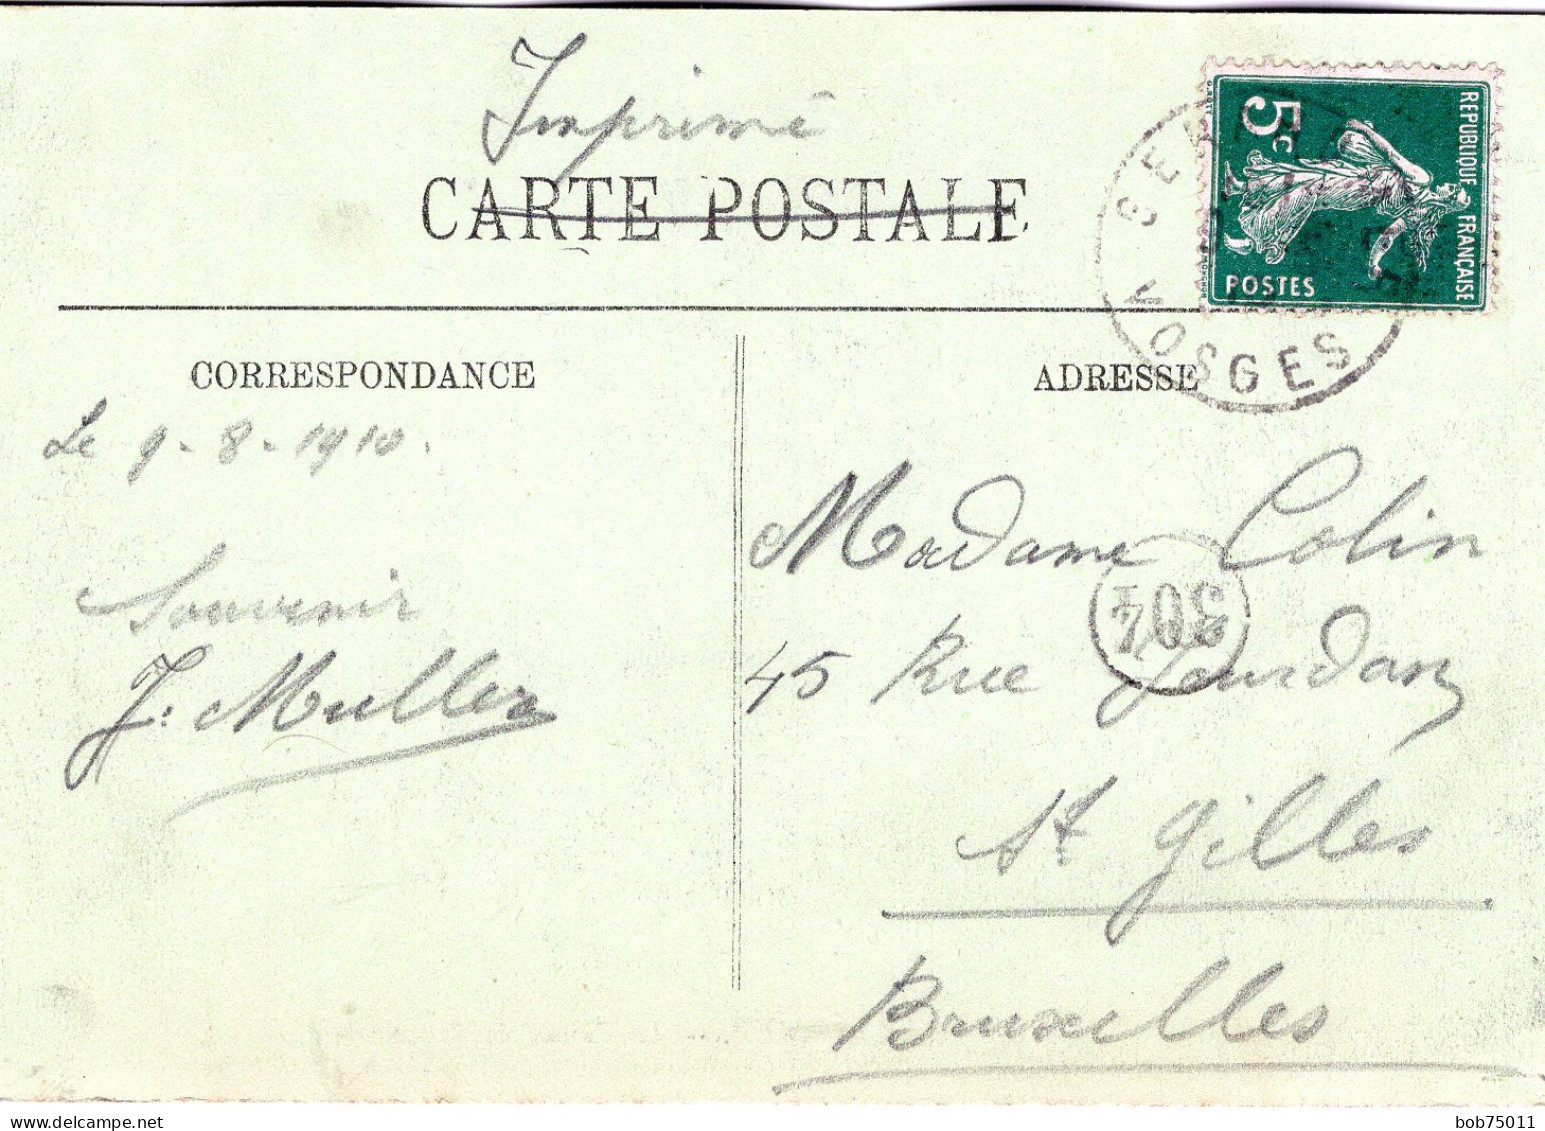 Imprimé
CARTE POSTALE
RÉPUBLIQUE FRANÇAISE
5c
POSTES
VOSGES
CORRESPONDANCE
ADRESSE
Le 9-8-1910.
Souvenir
J. Muller
Madame Colin
304
45 Rue Jourdan
St Gilles
Bruxelles
bob75011